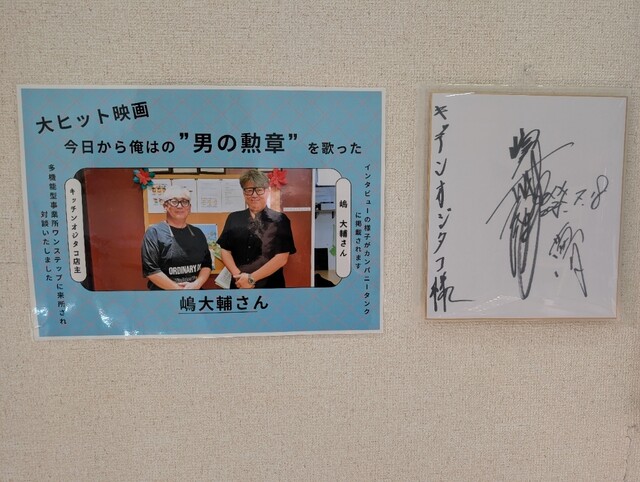 大ヒット映画
今日から俺はの”男の勲章”を歌った
インタビューの様子がカンパニータンク
に掲載されます
嶋 大輔さん
ORDINARY
キッチンオジタコ店主
多機能型事業所ワンステップに来所され
対談いたしました
嶋大輔さん
キッチンオジタコ様
7.8